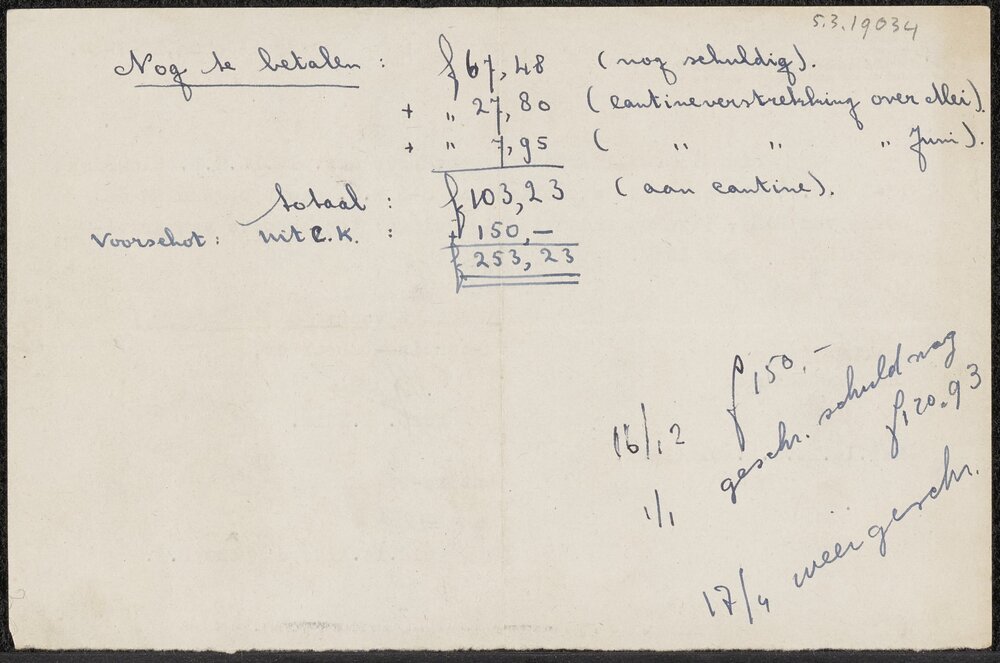 5.3.19034
Nog te betalen : f 67,48 (nog schuldig).
+ " 27,80 (cantineverstrekking over Mei).
+ " 7,95 ( " " " Juni).
totaal : f 103,23 (aan cantine).
Voorschot : uit C.K. : + 150,—
f 253,23
16/12 f 150.-
1/1 geschr. schuld nog
f 120.93
17/4 weer geschr.